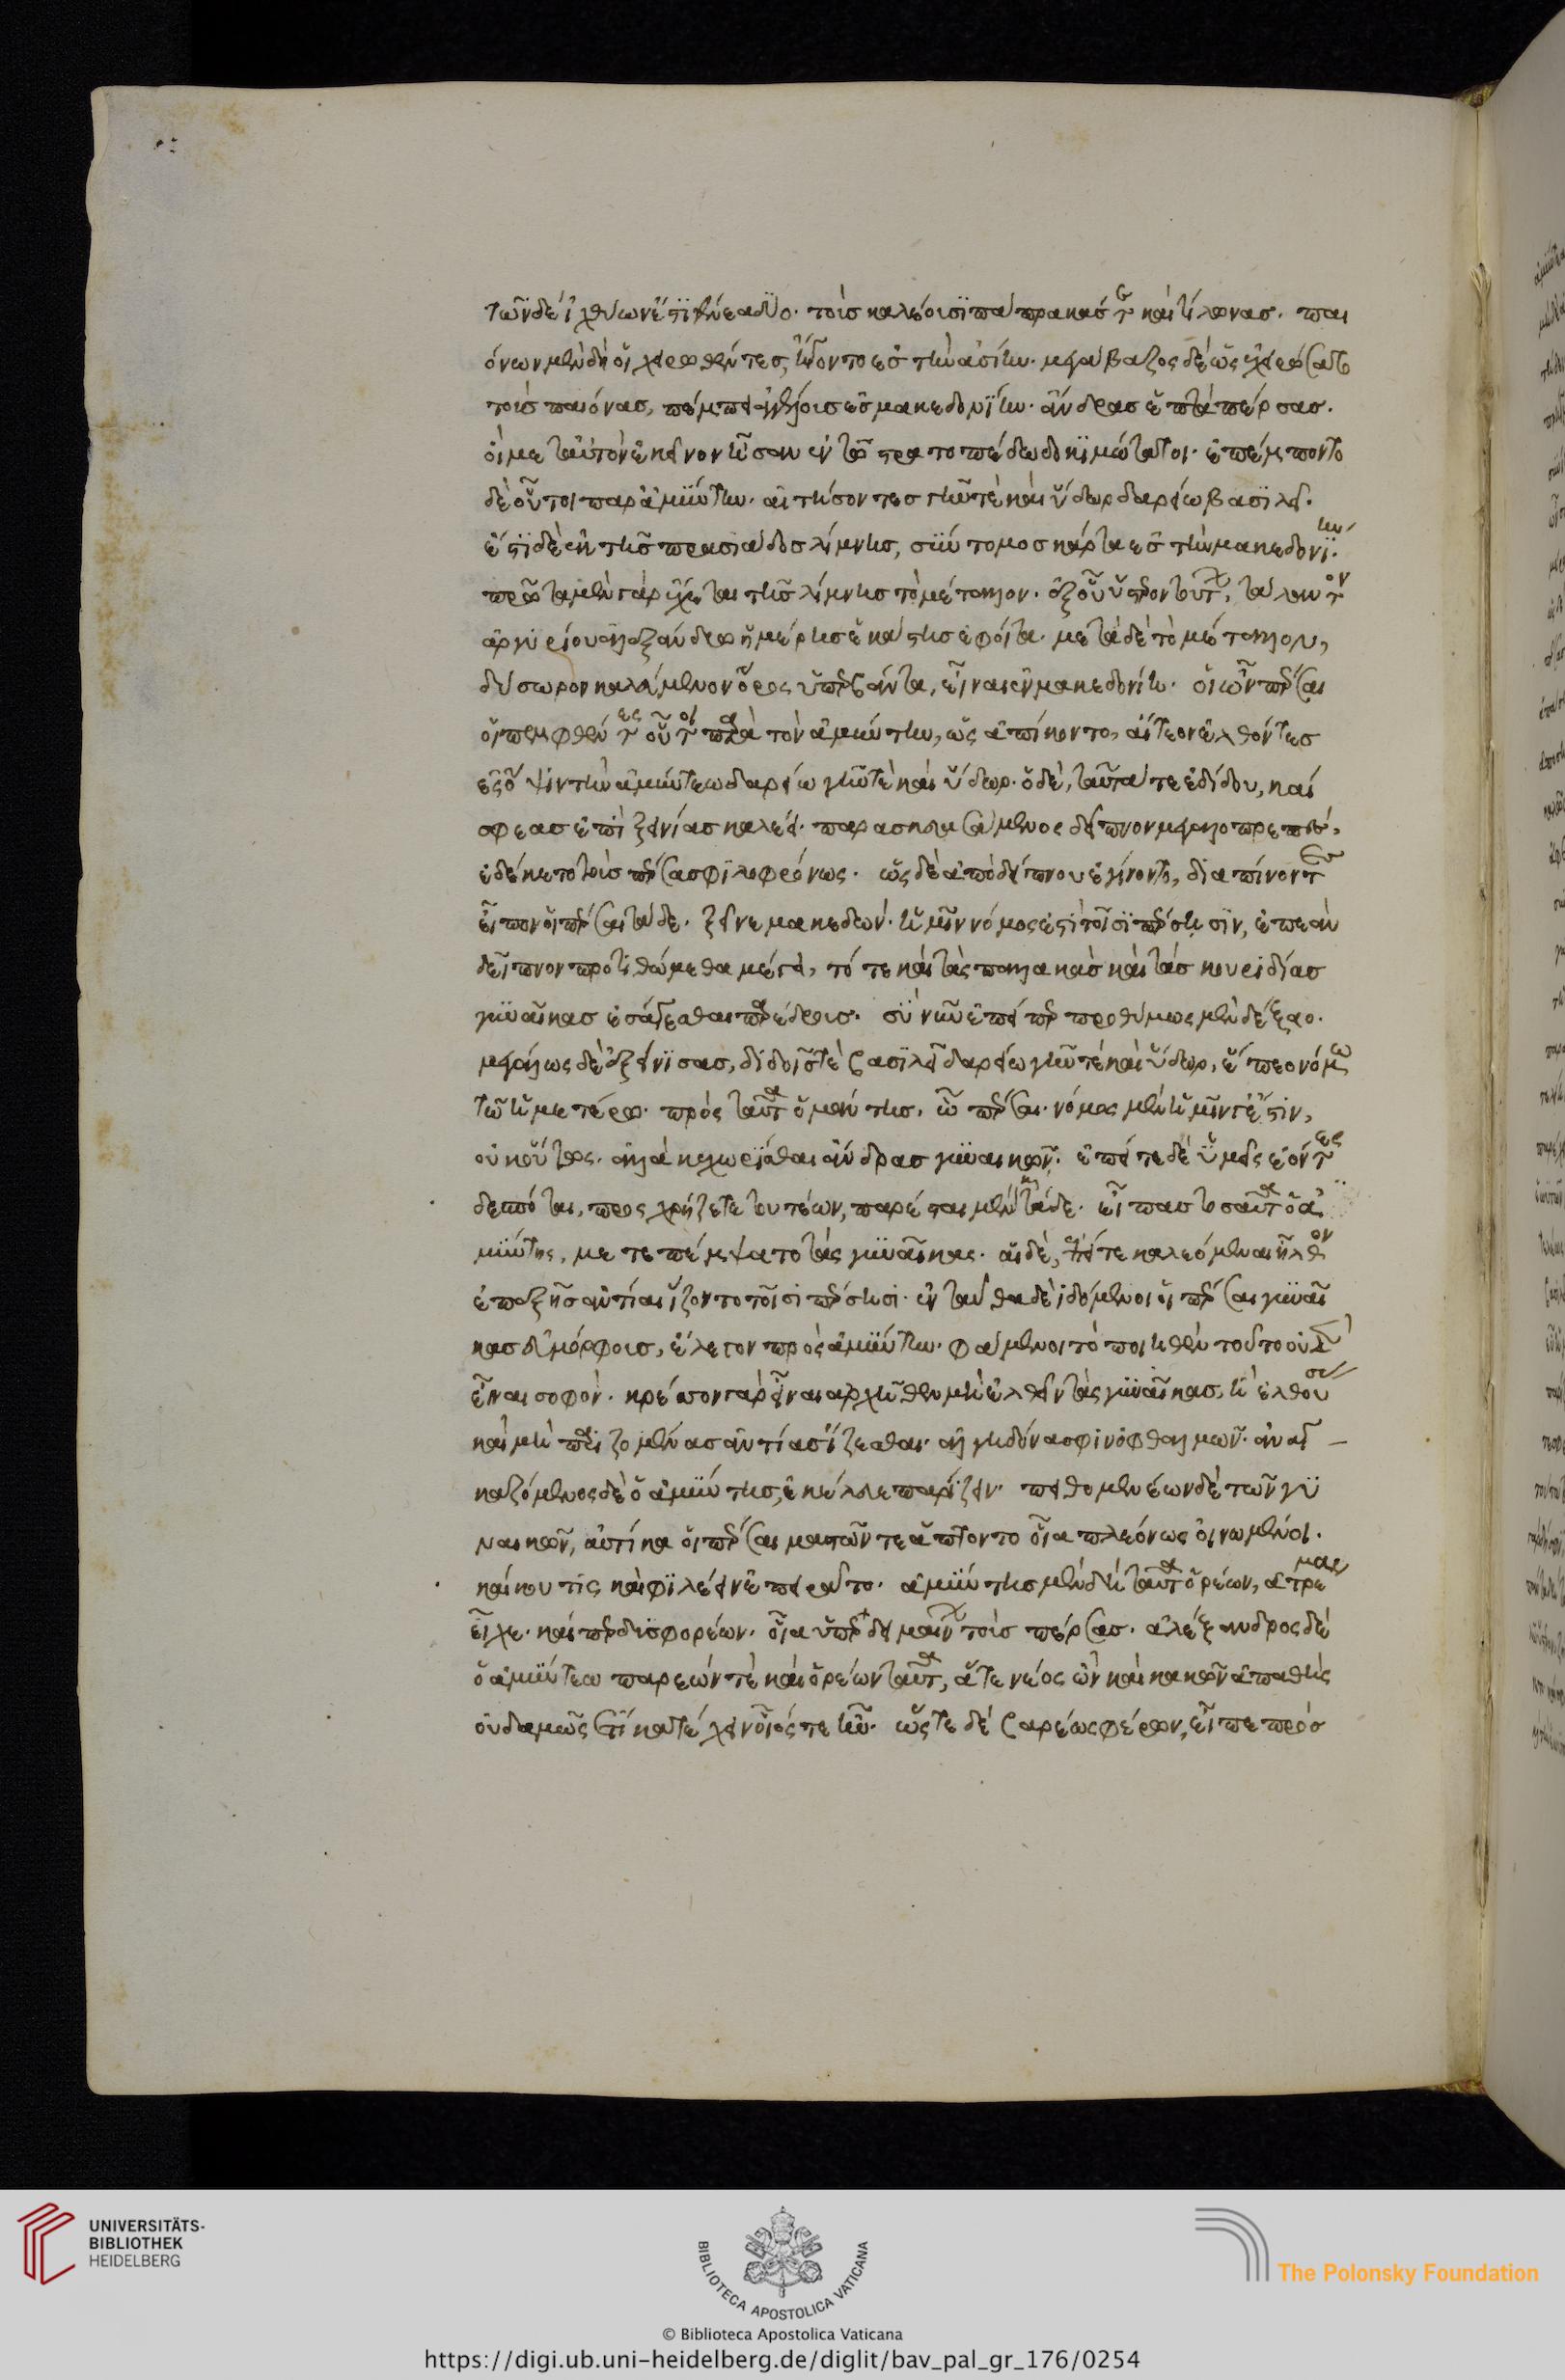 τῶν δὲ ἰχθύων ἐστὶ γένεα δύο. τοὺς καλέουσι πάπρακάς τε καὶ τίλωνας. παι
όνων μὲν δὴ οἱ χειρωθέντες, ἤγοντο ἐς τὴν ἀσίην. μεγάβαζος δὲ ὡς ἐχειρώσατο
τοὺς παίονας, πέμπει ἀγγέλους ἐς μακεδονίην. ἄνδρας ἑπτὰ πέρσας.
οἳ μετ' αὐτὸν ἐκεῖνον ἦσαν ἐν τῶ στρατοπέδω δοκιμώτατοι. ἐπέμποντο
δὲ οὗτοι παρ' ἀμύντην. αἰτήσοντες γῆν τὲ καὶ ὕδωρ δαρείω βασιλεῖ.
ἔστι δὲ ἐκ τῆς πρασιάδος λίμνης, σύντομος κάρτα ἐς τὴν μακεδονίην.
πρῶτα μὲν γὰρ ἔχεται τῆς λίμνης τὸ μέταλλον. ἐξ οὗ ὕστερον τούτων, τάλαντον
ἀργυρίου ἀλεξάνδρω ἡμέρης ἑκάστης ἐφοίτα. μετὰ δὲ τὸ μέταλλον,
δύσωρον καλεόμενον ὄρος ὑπερβάντα, εἶναι ἐν μακεδονίη. οἱ ὦν πέρσαι
οἱ πεμφθέντες οὗτοι παρὰ τὸν ἀμύντην, ὡς ἀπίκοντο, αἴτεον ἐλθόντες
ἐς ὄψιν τὴν ἀμύντεω δαρείω γῆν τὲ καὶ ὕδωρ. ὁ δὲ, ταῦτά τε ἐδίδου, καί
σφεας ἐπὶ ξείνια καλέει. παρασκευασάμενος δεῖπνον μεγαλοπρεπές,
ἐδέκετο τοὺς πέρσας φιλοφρόνως. ὡς δὲ ἀπὸ δείπνου ἐγίνοντο, διαπίνοντες
εἶπον οἱ πέρσαι τάδε. ξεῖνε μακεδών. ἡμῖν νόμος ἐστὶ τοῖσι πέρσησιν, ἐπεὰν
δεῖπνον προτιθώμεθα μέγα, τότε καὶ τὰς παλλακὰς καὶ τὰς κουριδίας
γυναῖκας ἐσάγεσθαι παρέδρους. σύ νῦν ἐπεί περ προθύμως μὲν δέξαο.
μεγάλως δὲ ἐξείνισας, διδοῖς τὲ βασιλεῖ δαρείω γῆν τέ καὶ ὕδωρ, ἕπεο νόμω
τῶ ἡμετέρω. πρὸς ταῦτα ὁ ἀμύντης. ὦ πέρσαι. νόμος μὲν ἡμῖν γέ ἐστιν,
οὐκ οὗτος. ἀλλὰ κεχωρίσθαι ἄνδρας γυναικῶν. ἐπεί τε δὲ ὑμεῖς ἐόντες
δεσπόται, προσχρήζετε τουτέων, παρέσται μὲν καὶ τάδε. εἴπας τοσαῦτα ὁ ἀ
μύντης, μετεπέμψατο τὰς γυναῖκας. αἱ δὲ, ἐπεί τε καλεόμεναι ἦλθον
ἐπεξῆς ἀντίαι ἵζοντο τοῖσι πέρσησι. ἐνταῦθα δὲ ἰδόμενοι οἱ πέρσαι γυναῖ
κας εὐμόρφους, ἔλεγον πρὸς ἀμύντην. φάμενοι τὸ ποιηθὲν τοῦτο οὐδὲν
εἶναι σοφόν. κρέσσον γὰρ εἶναι ἀρχῆθεν μὴ ἐλθεῖν τὰς γυναῖκας, ἢ ἐλθούσας
καὶ μὴ παριζομένας ἀντίας ἵζεσθαι. ἀλγηδόνας σφίν ὀφθαλμῶν. ἀναγ
καζόμενος δὲ ὁ ἀμύντης, ἐκέλευε παρίζειν. πειθομενέων δὲ τῶν γυ
ναικῶν, αὐτίκα οἱ πέρσαι μαστῶν τε ἅπτοντο οἷα πλεόνως οἰνωμένοι.
καί κού τις καὶ φιλέειν ἐπειρᾶτο. ἀμύντης μὲν δὴ ταῦτα ὁρέων, ἀτρέμας
εἶχε. καί περ δυσφορέων. οἷα ὑπερδειμαίνων τοὺς πέρσας. ἀλέξανδρος δὲ
ὁ ἀμύντεω παρεών τὲ καὶ ὁρέων ταῦτα, ἅτε νέος ὢν καὶ κακῶν ἀπαθὴς
οὐδαμῶς ἔτι κατέχειν οἷός τε ἦν. ὥστε δὲ βαρέως φέρων, εἶπε πρὸς
UNIVERSITÄTS-
BIBLIOTHEK
HEIDELBERG
BIBLIOTECA APOSTOLICA VATICANA
The Polonsky Foundation
© Biblioteca Apostolica Vaticana
https://digi.ub.uni-heidelberg.de/diglit/bav_pal_gr_176/0254